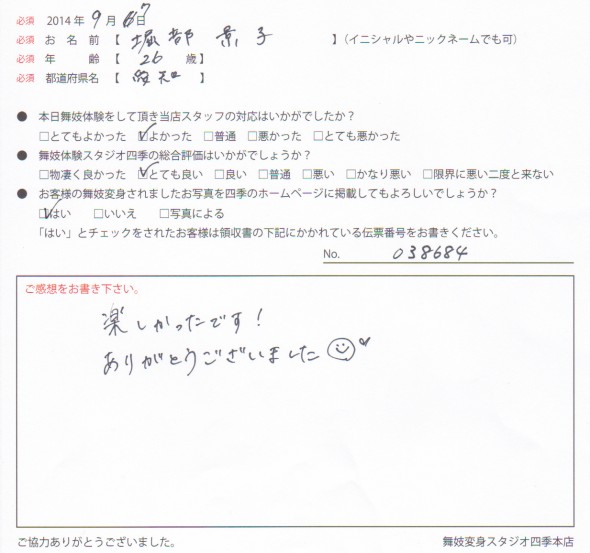 必須 2014年 9月 7日
必須 お名前【 堀部 景子 】(イニシャルやニックネームでも可)
必須 年齢【 26 歳】
必須 都道府県名【 愛知 】
● 本日舞妓体験をして頂き当店スタッフの対応はいかがでしたか?
□とてもよかった ☑よかった □普通 □悪かった □とても悪かった
● 舞妓体験スタジオ四季の総合評価はいかがでしょうか?
□物凄く良かった ☑とても良い □良い □普通 □悪い □かなり悪い □限界に悪い二度と来ない
● お客様の舞妓変身されましたお写真を四季のホームページに掲載してもよろしいでしょうか?
☑はい □いいえ □写真による
「はい」とチェックをされたお客様は領収書の下記にかかれている伝票番号をお書きください。
No. 038684
ご感想をお書き下さい。
楽しかったです!
ありがとうございました
ご協力ありがとうございました。 舞妓変身スタジオ四季本店